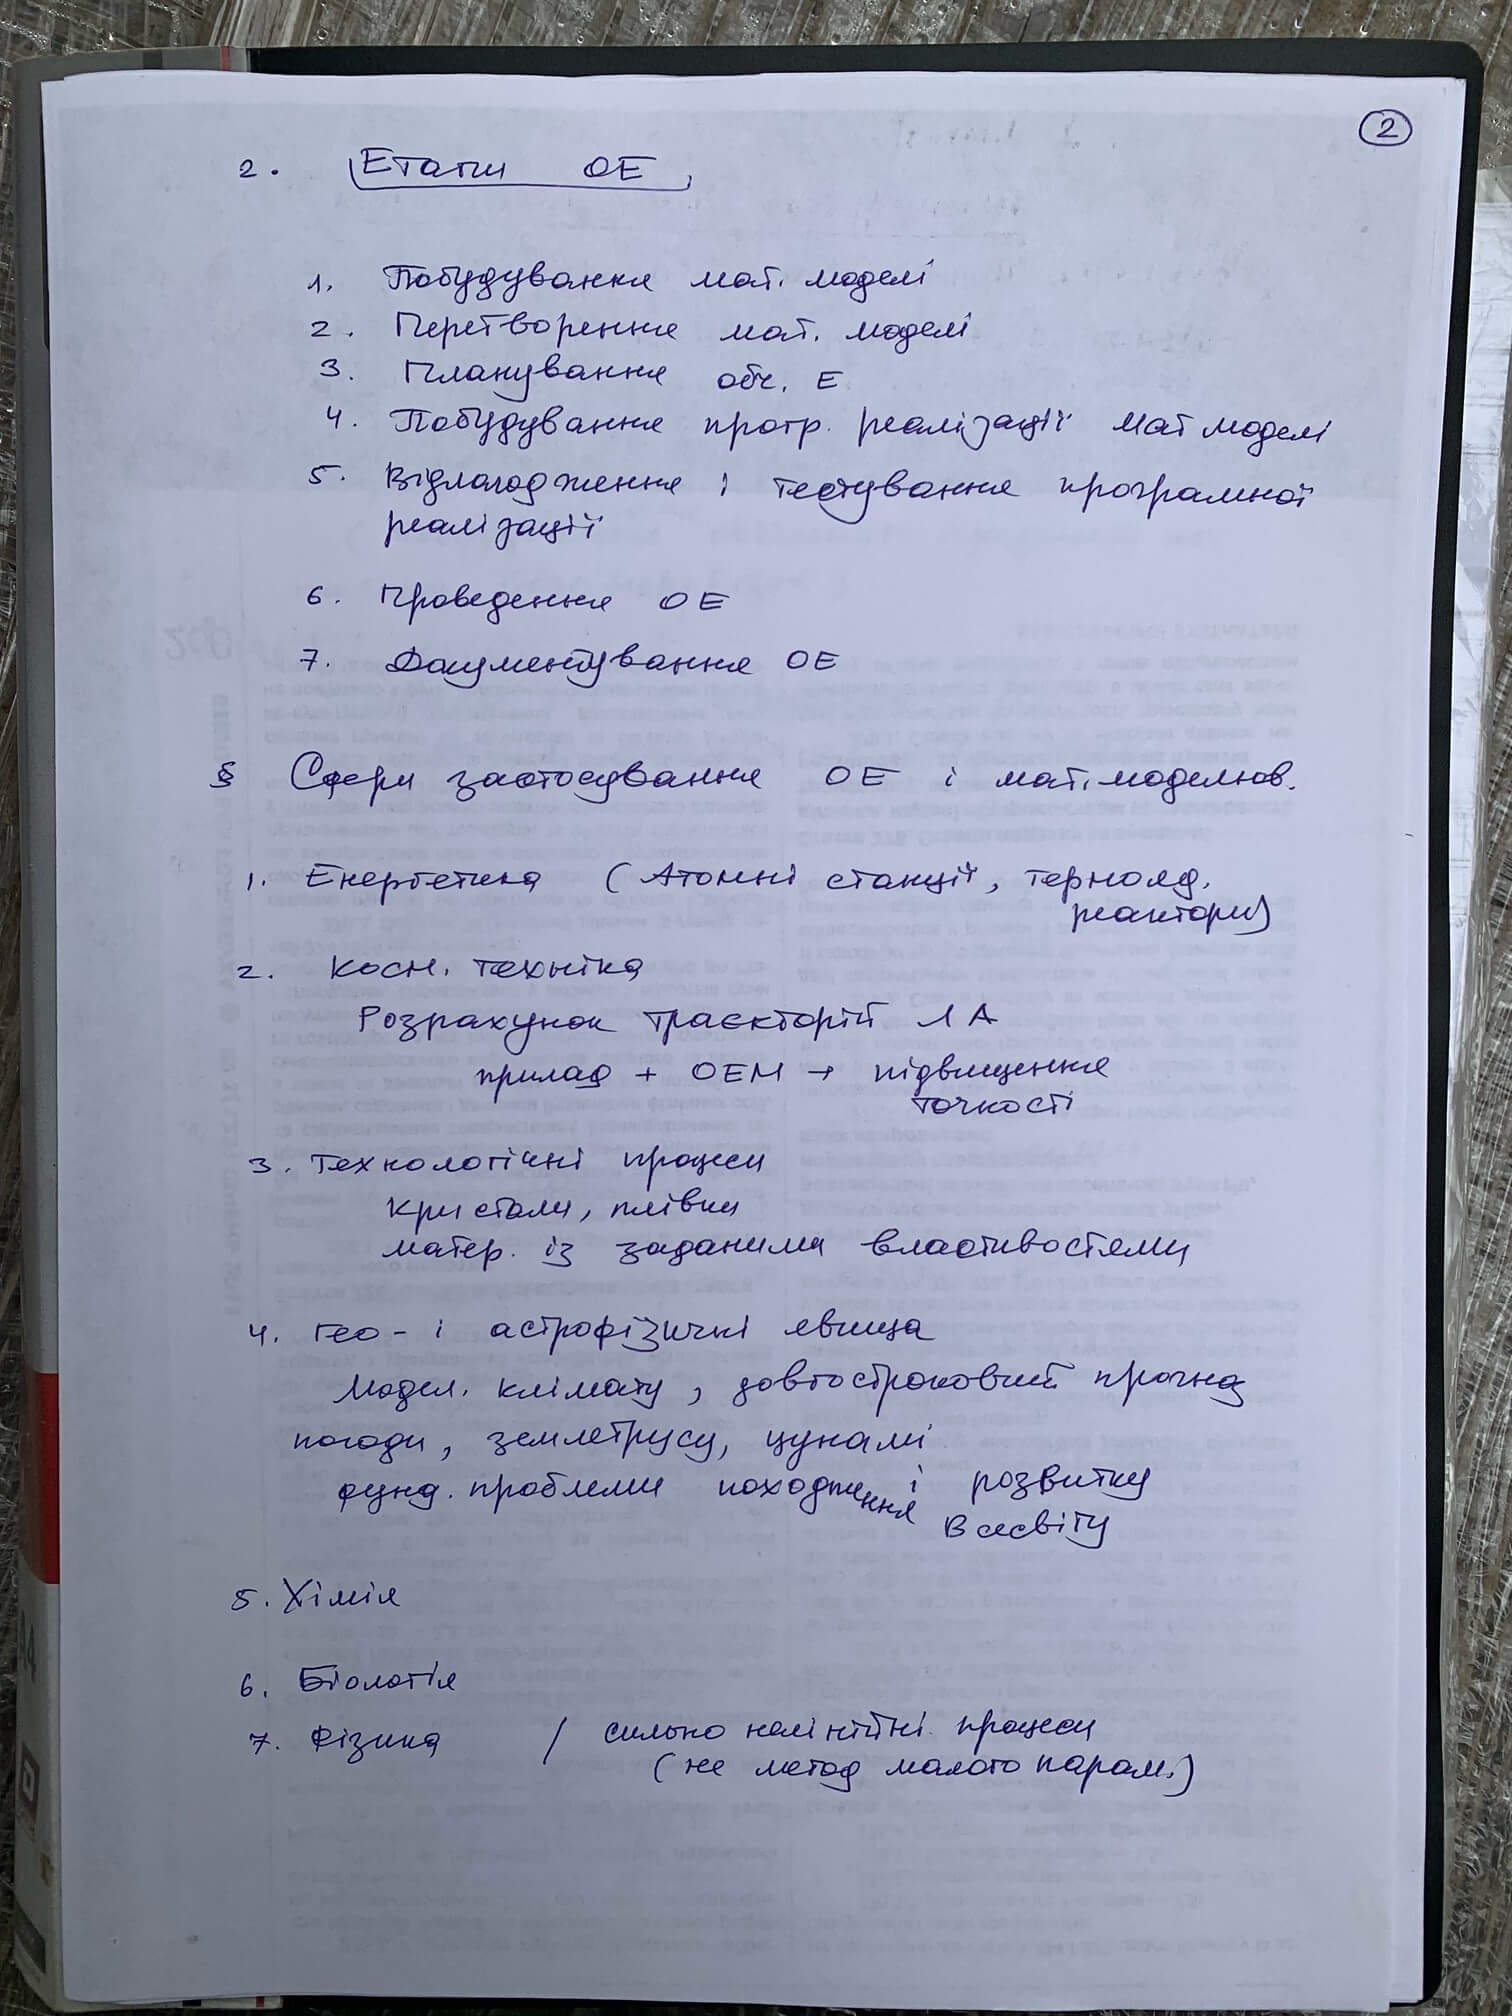 2
2. Етапи ОЕ
1. Побудування мат. моделі
2. Перетворення мат. моделі
3. Планування обч. Е
4. Побудування прогр. реалізації мат моделі
5. Відлагодження і тестування програмної
реалізації
6. Проведення ОЕ
7. Документування ОЕ
§ Сфери застосування ОЕ і мат. моделюв.
1. Енергетика (Атомні станції, термояд.
реактори)
2. Косм. техніка
Розрахунок траєкторій ЛА
прилад + ОЕМ → підвищення
точності
3. Технологічні процеси
Кристали, плівки
матер. із заданими властивостями
4. Гео- і астрофізичні явища
Модел. клімату, довгостроковий прогноз
погоди, землетрусу, цунамі
фунд. проблеми походження і розвитку
Всесвіту
5. Хімія
6. Біологія
7. Фізика / сильно нелінійні процеси
(не метод малого парам.)